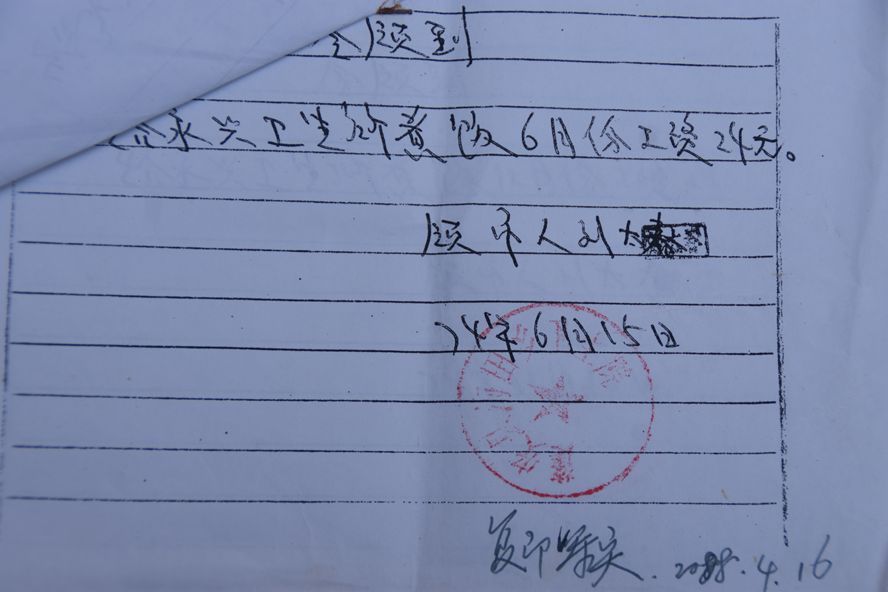 今领到
永兴卫生所煮饭6月份工资24元。
领币人刘大
74年6月15日
复印属实. 20 .4.16